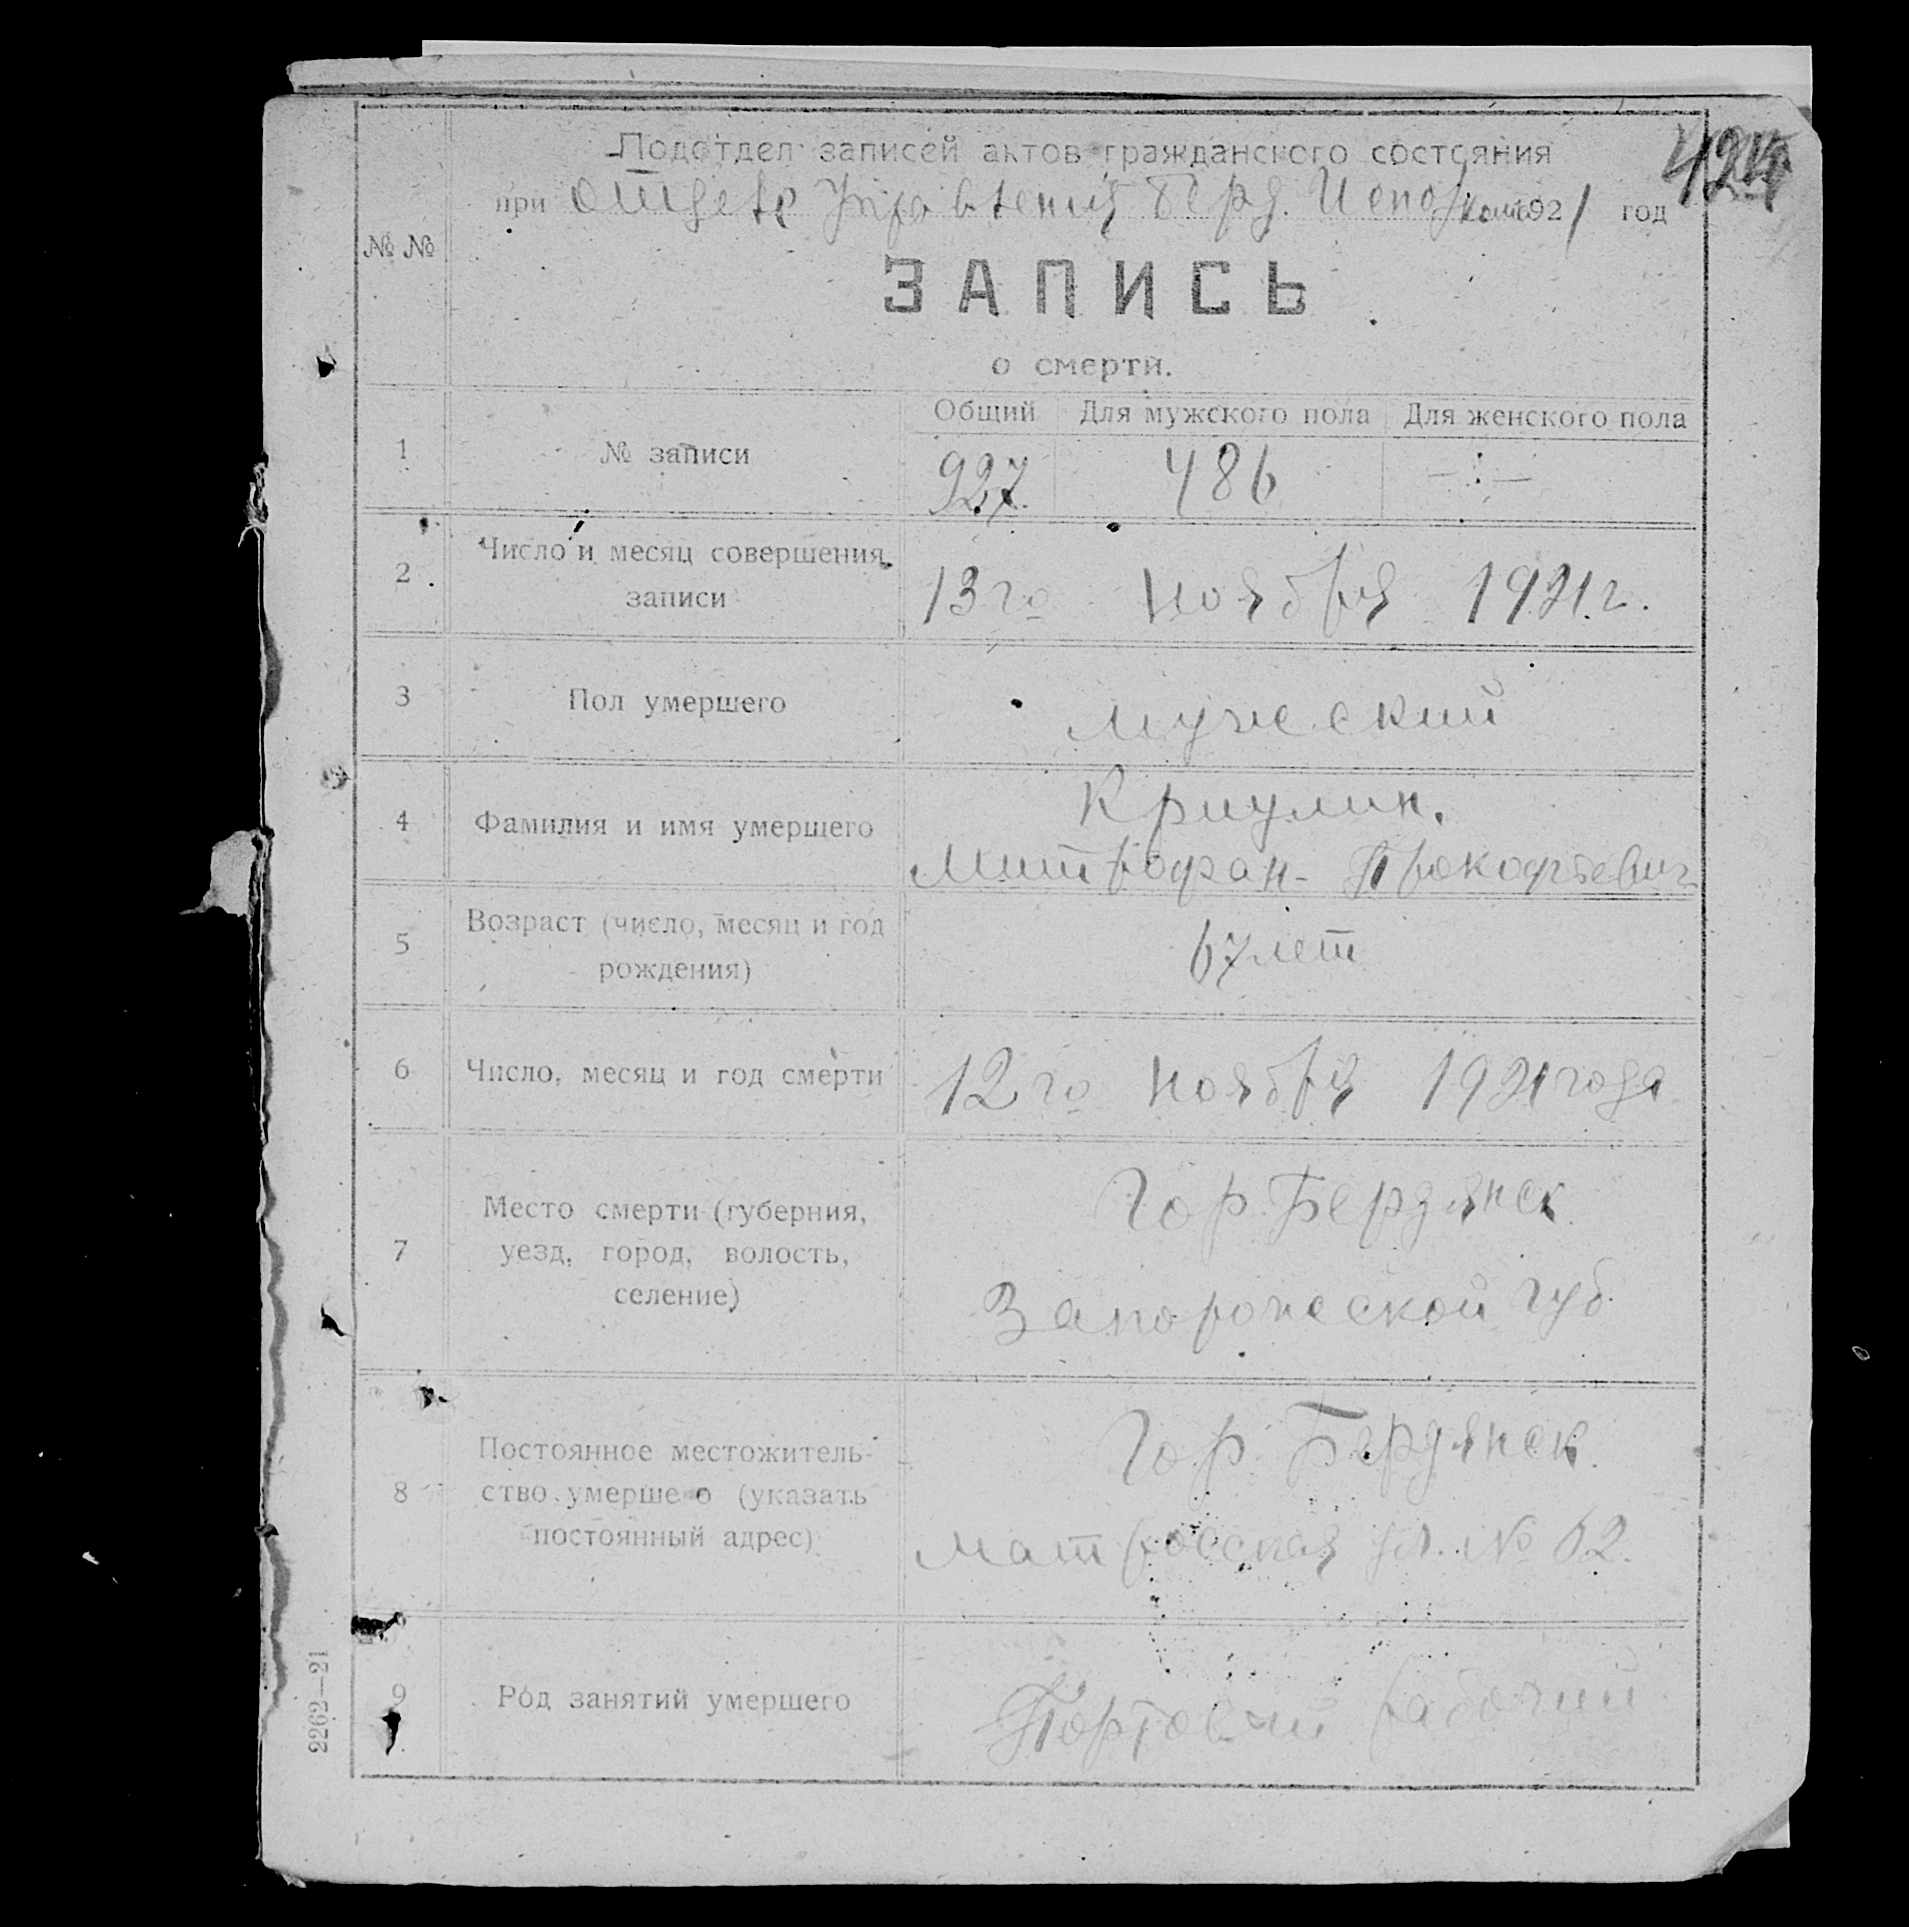 Подотдел записей актов гражданского состояния
при отделе Управления Берд. Исполкома 1921 год
№ №
ЗАПИСЬ
о смерти.
Общий Для мужского пола Для женского пола
1 № записи 927. 486 —:—
2 Число и месяц совершения
записи
13го ноября 1921 г.
3 Пол умершего мужеский
4 Фамилия и имя умершего
Криулин.
Митрофан - Прокофьевич
5 Возраст (число, месяц и год
рождения)
67 лет
6 Число, месяц и год смерти 12го ноября 1921 года
7 Место смерти (губерния,
уезд, город, волость,
селение)
Гор. Бердянск
Запорожеской губ.
8 Постоянное местожитель-
ство умерше о (указать
постоянный адрес)
Гор. Бердянск.
Матросская ул. № 62.
9 Род занятий умершего Портовый рабочий
2262—21